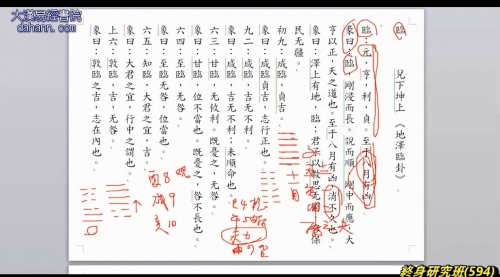 大漢易經書院
dahann.com
臨 兌下坤上《地澤臨卦》
臨:元,亨,利,貞。至于八月有凶。
彖曰:臨,剛浸而長。說而順,剛中而應,大
亨以正,天之道也。至于八月有凶,消不久也。
象曰:澤上有地,臨;君子以教思无窮,容保
民无疆。
初九:咸臨,貞吉。
象曰:咸臨貞吉,志行正也。
九二:咸臨,吉无不利。
象曰:咸臨,吉无不利;未順命也。
六三:甘臨,无攸利。既憂之,无咎。
象曰:甘臨,位不當也。既憂之,咎不長也。
六四:至臨,无咎。
象曰:至臨无咎,位當也。
六五:知臨,大君之宜,吉。
象曰:大君之宜,行中之謂也。
上六:敦臨,吉,无咎。
象曰:敦臨之吉,志在內也。
十二月
8
戌 9
亥 10
終身研究班(594)